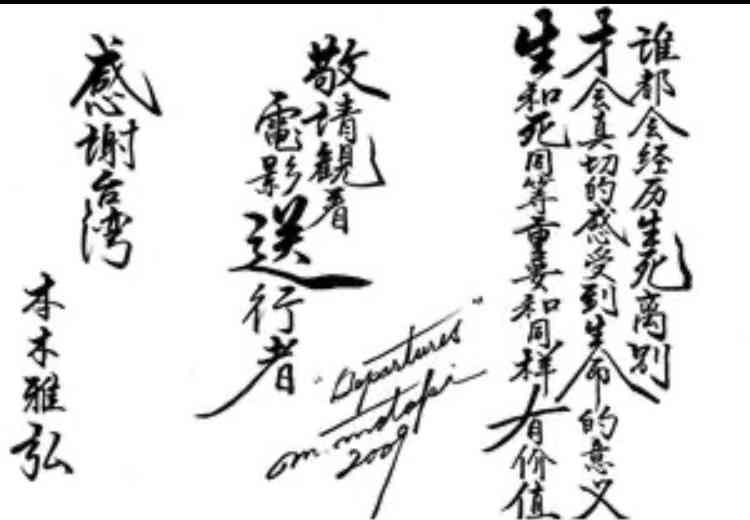 誰都会经历生死离别
才会真切的感受到生命的意义
生和死同等重要和同样有价值
敬請觀看
電影送行者
"Departures"
m. motoki
2009
感謝台湾
本木雅弘